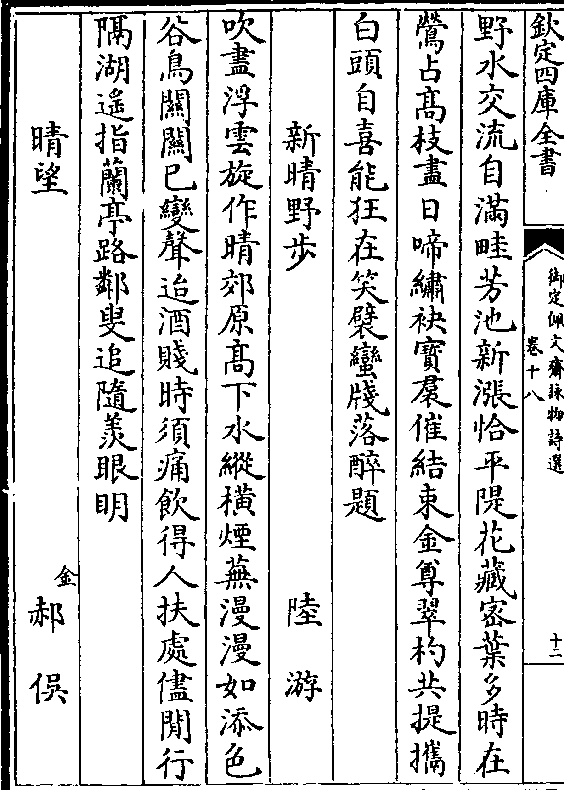 欽定四庫全書
御定佩文齋詠物詩選
卷十八
十二
野水交流自滿畦芳池新漲恰平隄花藏密葉多時在
鶯占髙枝盡日啼繡袂寳裠催結束金尊翠杓共提攜
白頭自喜能狂在笑襞蠻牋落醉題
新晴野步
陸游
吹盡浮雲旋作晴郊原髙下水縱橫煙蕪漫漫如添色
谷鳥關關已變聲迨酒賤時須痛飲得人扶處儘閒行
隔湖遙指蘭亭路鄰叟追隨羨眼明
晴望
金郝俁